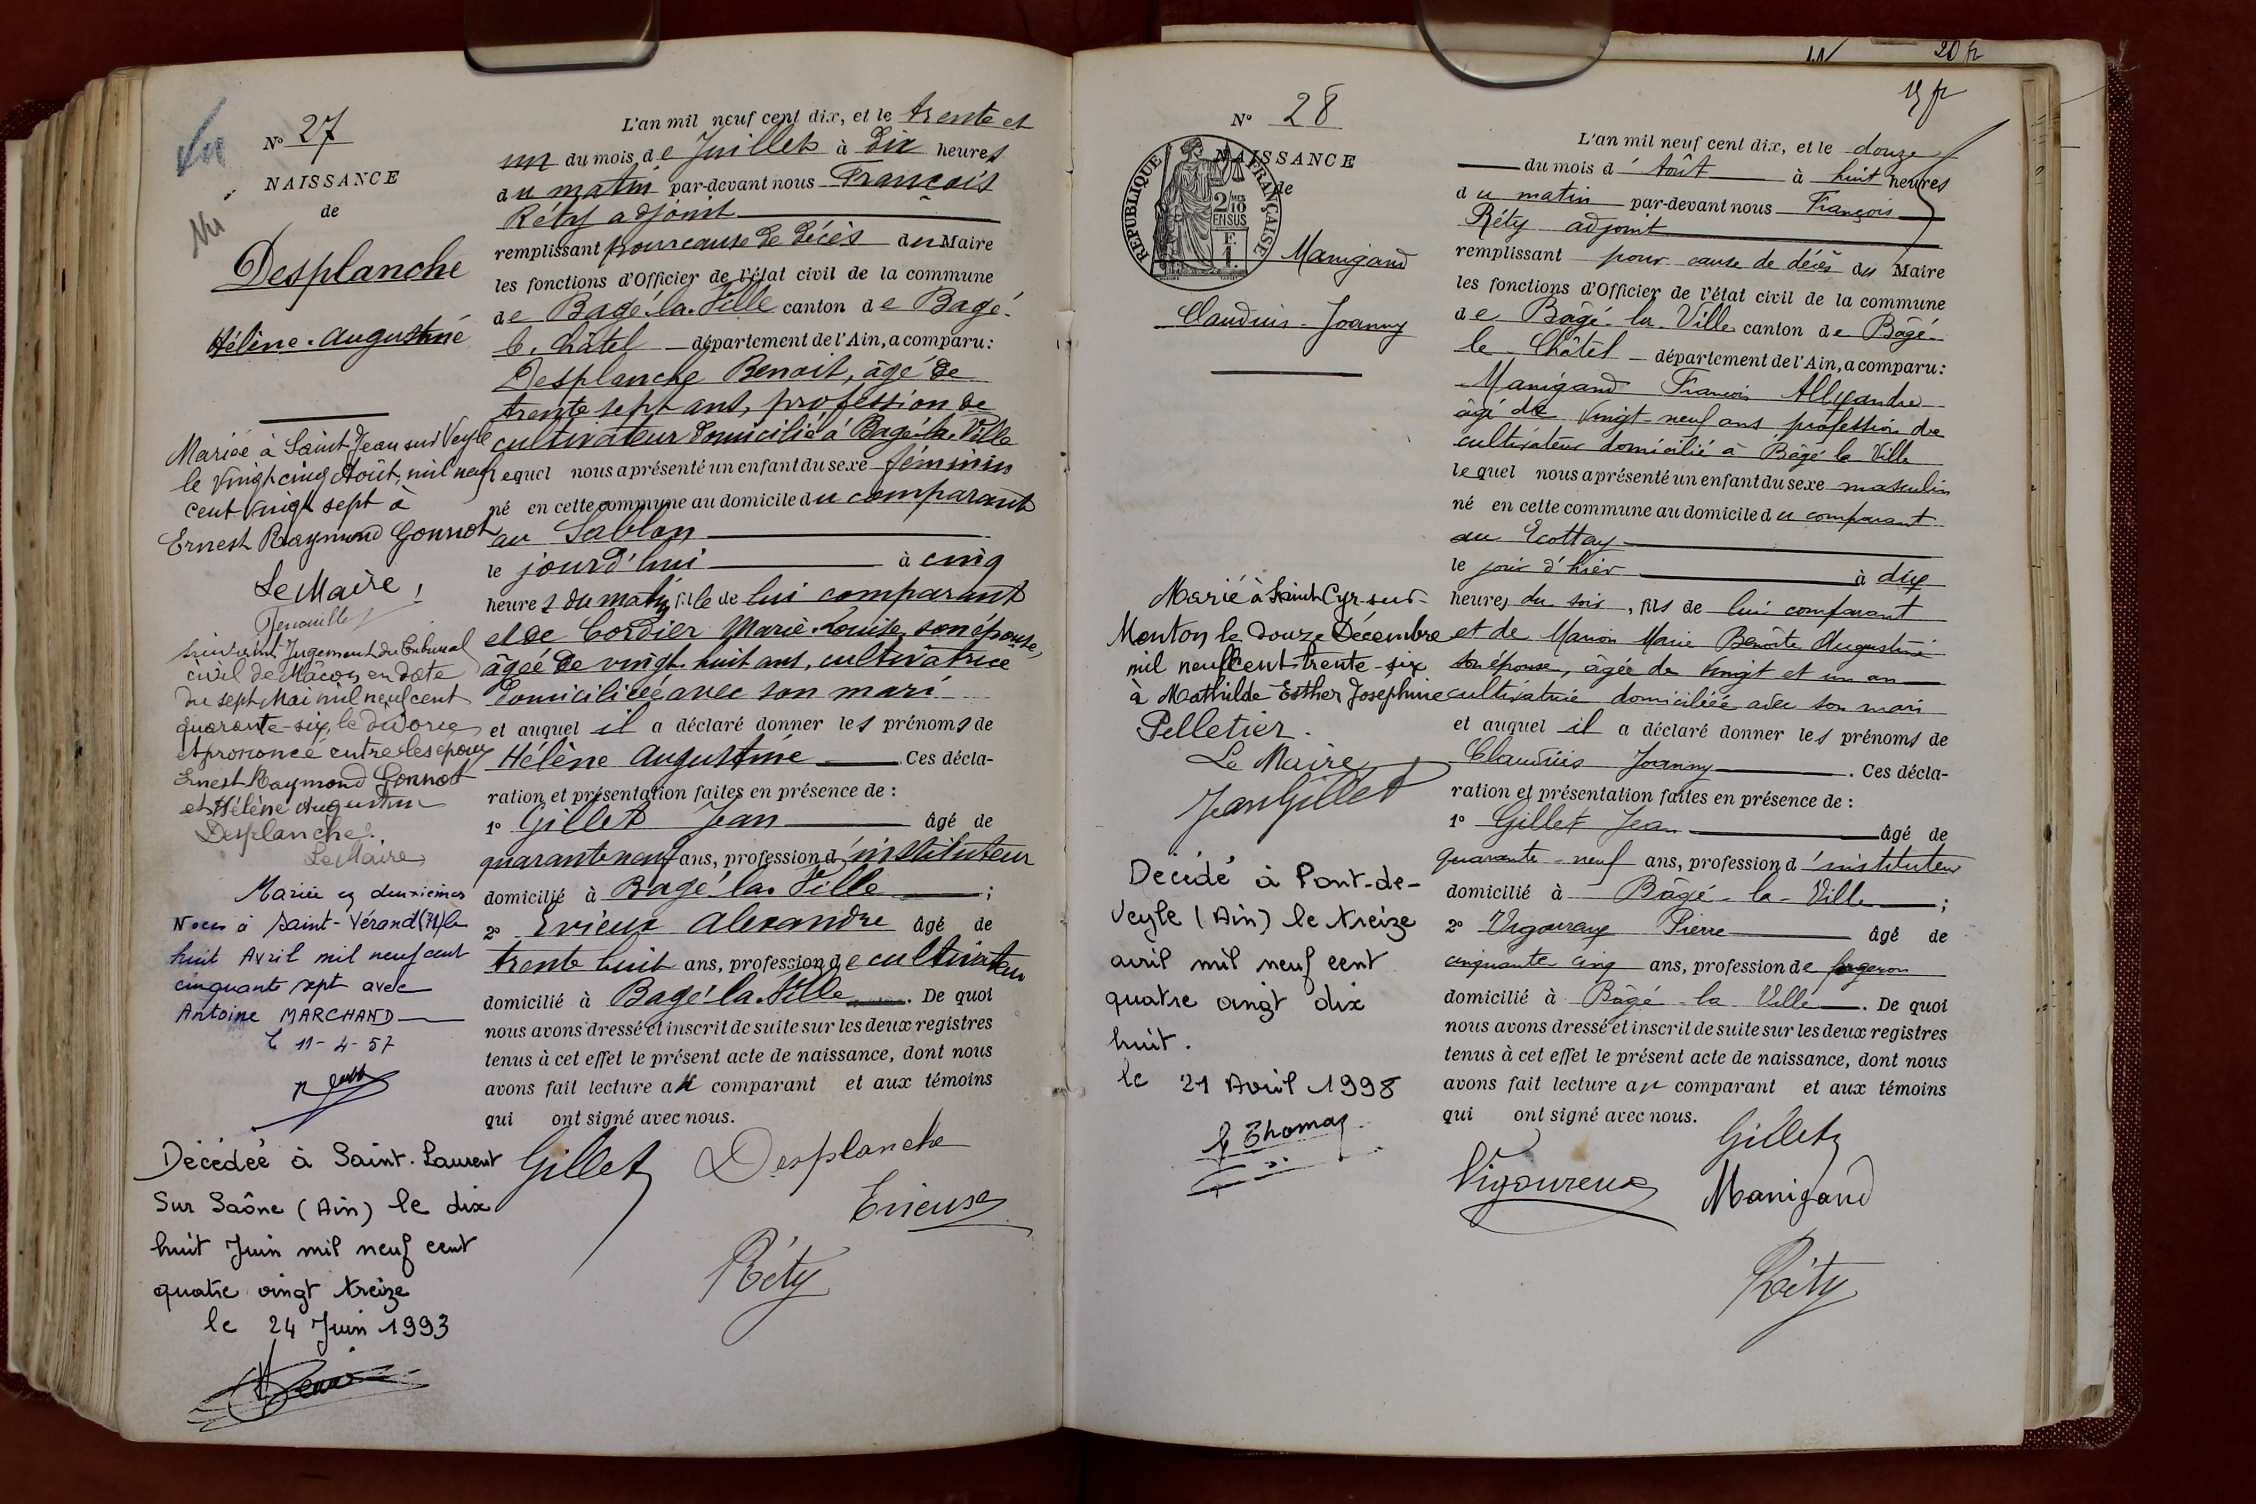 Nº 27
NAISSANCE
de
Desplanche
Hélène-Augustine
Mariée à Saint Jean sur Veyle
le vingt cinq Août mil neuf
cent vingt sept à
Ernest Raymond Gonnot
Le Maire,
Suivant Jugement du Tribunal
civil de Mâcon en date
du sept Mai mil neuf cent
quarante-six, le divorce
est prononcé entre les époux
Ernest Raymond Gonnot
et Hélène Augustine
Desplanche.
Le Maire
Mariée en deuxièmes
Noces à Saint-Vérand (71) le
huit Avril mil neuf cent
cinquante sept avec
Antoine MARCHAND
le 11-4-57
Décédée à Saint-Laurent
Sur Saône (Ain) le dix
huit Juin mil neuf cent
quatre vingt treize
le 24 Juin 1993
L'an mil neuf cent dix, et le trente et
un du mois de Juillet à dix heures
du matin par-devant nous François
Réty adjoint
remplissant pour cause de décès du Maire
les fonctions d'Officier de l'état civil de la commune
de Bagé-la-Ville canton de Bagé-
le-Châtel département de l'Ain, a comparu:
Desplanche Benoit, âgé de
trente sept ans, profession de
cultivateur domicilié à Bagé-la-Ville
lequel nous a présenté un enfant du sexe féminin
né en cette commune au domicile du comparant
au Sablon
le jourd'hui à cinq
heures du matin, fille de lui comparant
et de Cordier Marie-Louise, son épouse,
âgée de vingt-huit ans, cultivatrice
domiciliée avec son mari
et auquel il a déclaré donner les prénoms de
Hélène Augustine Ces décla-
ration et présentation faites en présence de :
1º Gillet Jean âgé de
quarante neuf ans, profession d'instituteur
domicilié à Bagé-la-Ville ;
2º Erieux Alexandre âgé de
trente huit ans, profession de cultivateur
domicilié à Bagé-la-Ville. De quoi
nous avons dressé et inscrit de suite sur les deux registres
tenus à cet effet le présent acte de naissance, dont nous
avons fait lecture au comparant et aux témoins
qui ont signé avec nous.
Gillet Desplanche
Erieux
Réty
20 fr
15 fr
Nº 28
NAISSANCE
de
RÉPUBLIQUE FRANÇAISE
2/10 EN SUS
F. 1.
Manigand
Claudius-Joanny
Marié à Saint Cyr-sur-
Menton le douze Décembre
mil neuf cent trente-six
à Mathilde Esther Josephine
Pelletier.
Le Maire,
Jean Gillet
Décédé à Pont-de-
Veyle (Ain) le treize
avril mil neuf cent
quatre vingt dix
huit.
le 21 Avril 1998
Thomas
L'an mil neuf cent dix, et le douze
du mois d'Août à huit heures
du matin par-devant nous François
Réty adjoint
remplissant pour cause de décès du Maire
les fonctions d'Officier de l'état civil de la commune
de Bâgé-la-Ville canton de Bâgé-
le-Châtel département de l'Ain, a comparu:
Manigand François Allexandre
âgé de vingt-neuf ans profession de
cultivateur domicilié à Bâgé la Ville
lequel nous a présenté un enfant du sexe masculin
né en cette commune au domicile du comparant
au Ecottay
le jour d'hier à dix
heures du soir, fils de lui comparant
et de Manon Marie Benoîte Augustine
son épouse, âgée de vingt et un an
cultivatrice domiciliée avec son mari
et auquel il a déclaré donner les prénoms de
Claudius Joanny. Ces décla-
ration et présentation faites en présence de :
1º Gillet Jean âgé de
quarante-neuf ans, profession d'instituteur
domicilié à Bâgé-la-Ville ;
2º Vigoureux Pierre âgé de
cinquante cinq ans, profession de forgeron
domicilié à Bâgé-la-Ville. De quoi
nous avons dressé et inscrit de suite sur les deux registres
tenus à cet effet le présent acte de naissance, dont nous
avons fait lecture au comparant et aux témoins
qui ont signé avec nous.
Gillet
Vigoureux Manigand
Réty